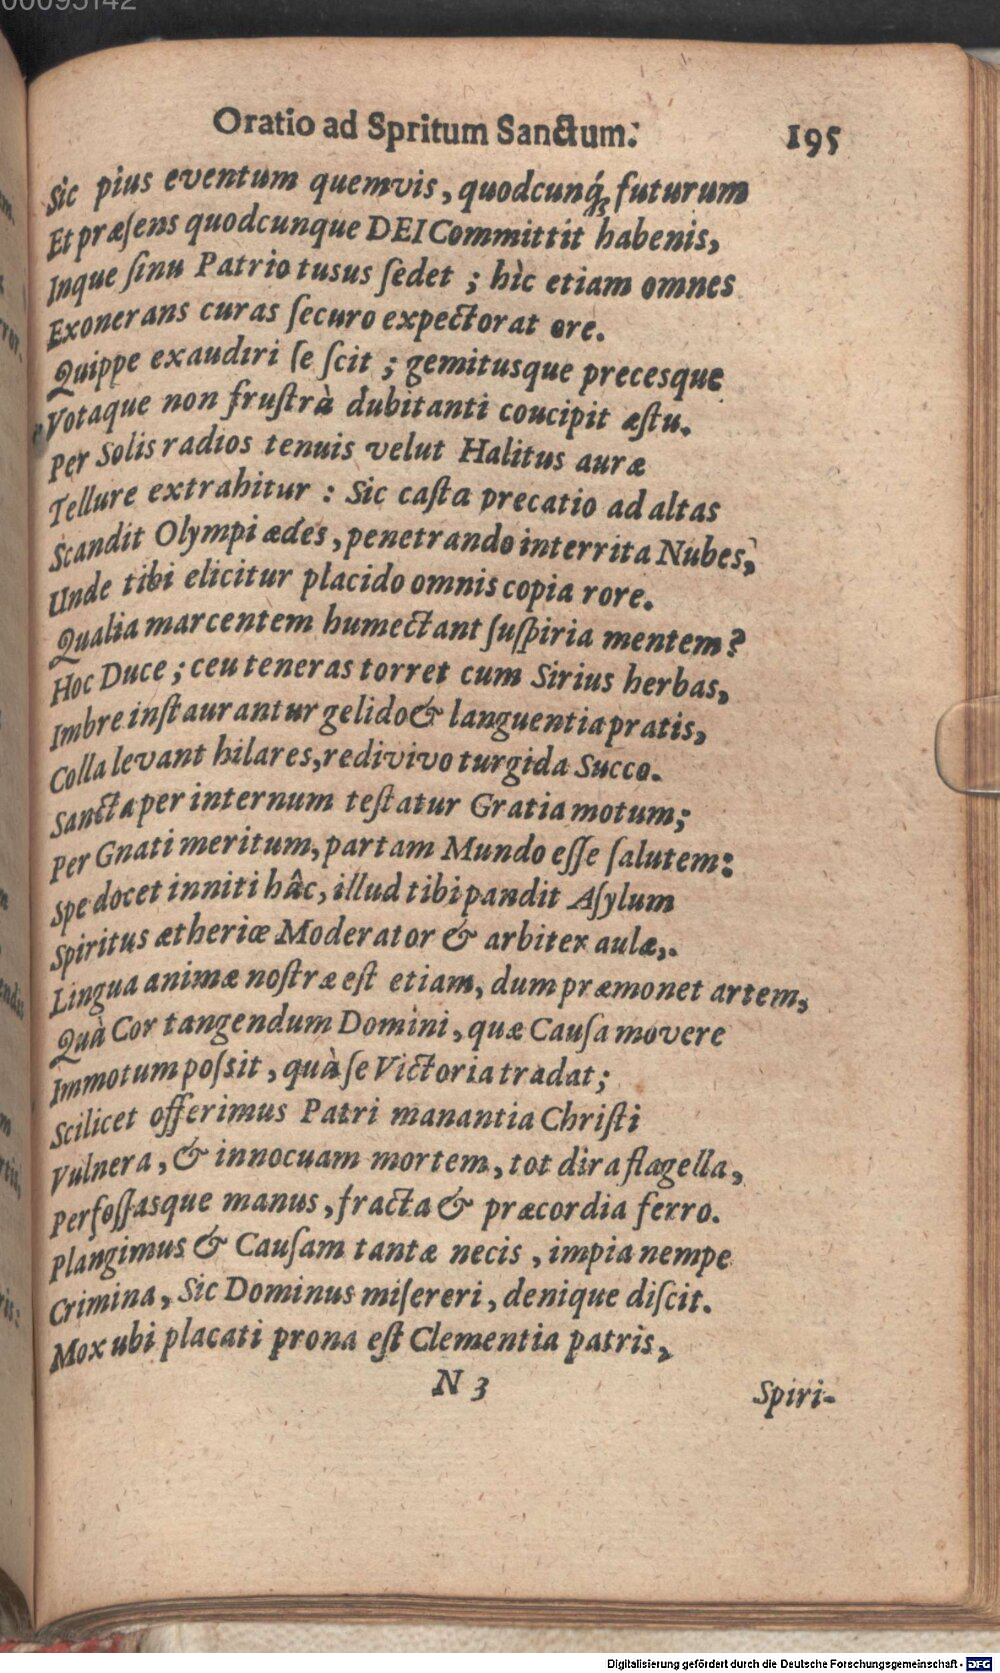 00095142
Oratio ad Spritum Sanctum. 195
Sic pius eventum quemvis, quodcunq́; futurum
Et præsens quodcunque DEI Committit habenis,
Inque sinu Patrio tusus sedet ; hìc etiam omnes
Exonerans curas securo expectorat ore.
Quippe exaudiri se scit ; gemitusque precesque
Votaque non frustrà dubitanti coucipit æstu.
Per Solis radios tenuis velut Halitus auræ
Tellure extrahitur : Sic casta precatio ad altas
Scandit Olympi ædes, penetrando interrita Nubes,
Unde tibi elicitur placido omnis copia rore.
Qualia marcentem humectant suspiria mentem?
Hoc Duce ; ceu teneras torret cum Sirius herbas,
Imbre instaurantur gelido & languentia pratis,
Colla levant hilares, redivivo turgida Succo.
Sancta per internum testatur Gratia motum;
Per Gnati meritum, partam Mundo esse salutem:
Spe docet inniti hâc, illud tibi pandit Asylum
Spiritus ætheriæ Moderator & arbiter aulæ,.
Lingua animæ nostræ est etiam, dum præmonet artem,
Quà Cor tangendum Domini, quæ Causa movere
Immotum possit, quà se Victoria tradat;
Scilicet offerimus Patri manantia Christi
Vulnera, & innocuam mortem, tot dira flagella,
Perfossasque manus, fracta & præcordia ferro.
Plangimus & Causam tantæ necis, impia nempe
Crimina, Sic Dominus misereri, denique discit.
Mox ubi placati prona est Clementia patris,
N 3
Spiri-
Digitalisierung gefördert durch die Deutsche Forschungsgemeinschaft - DFG